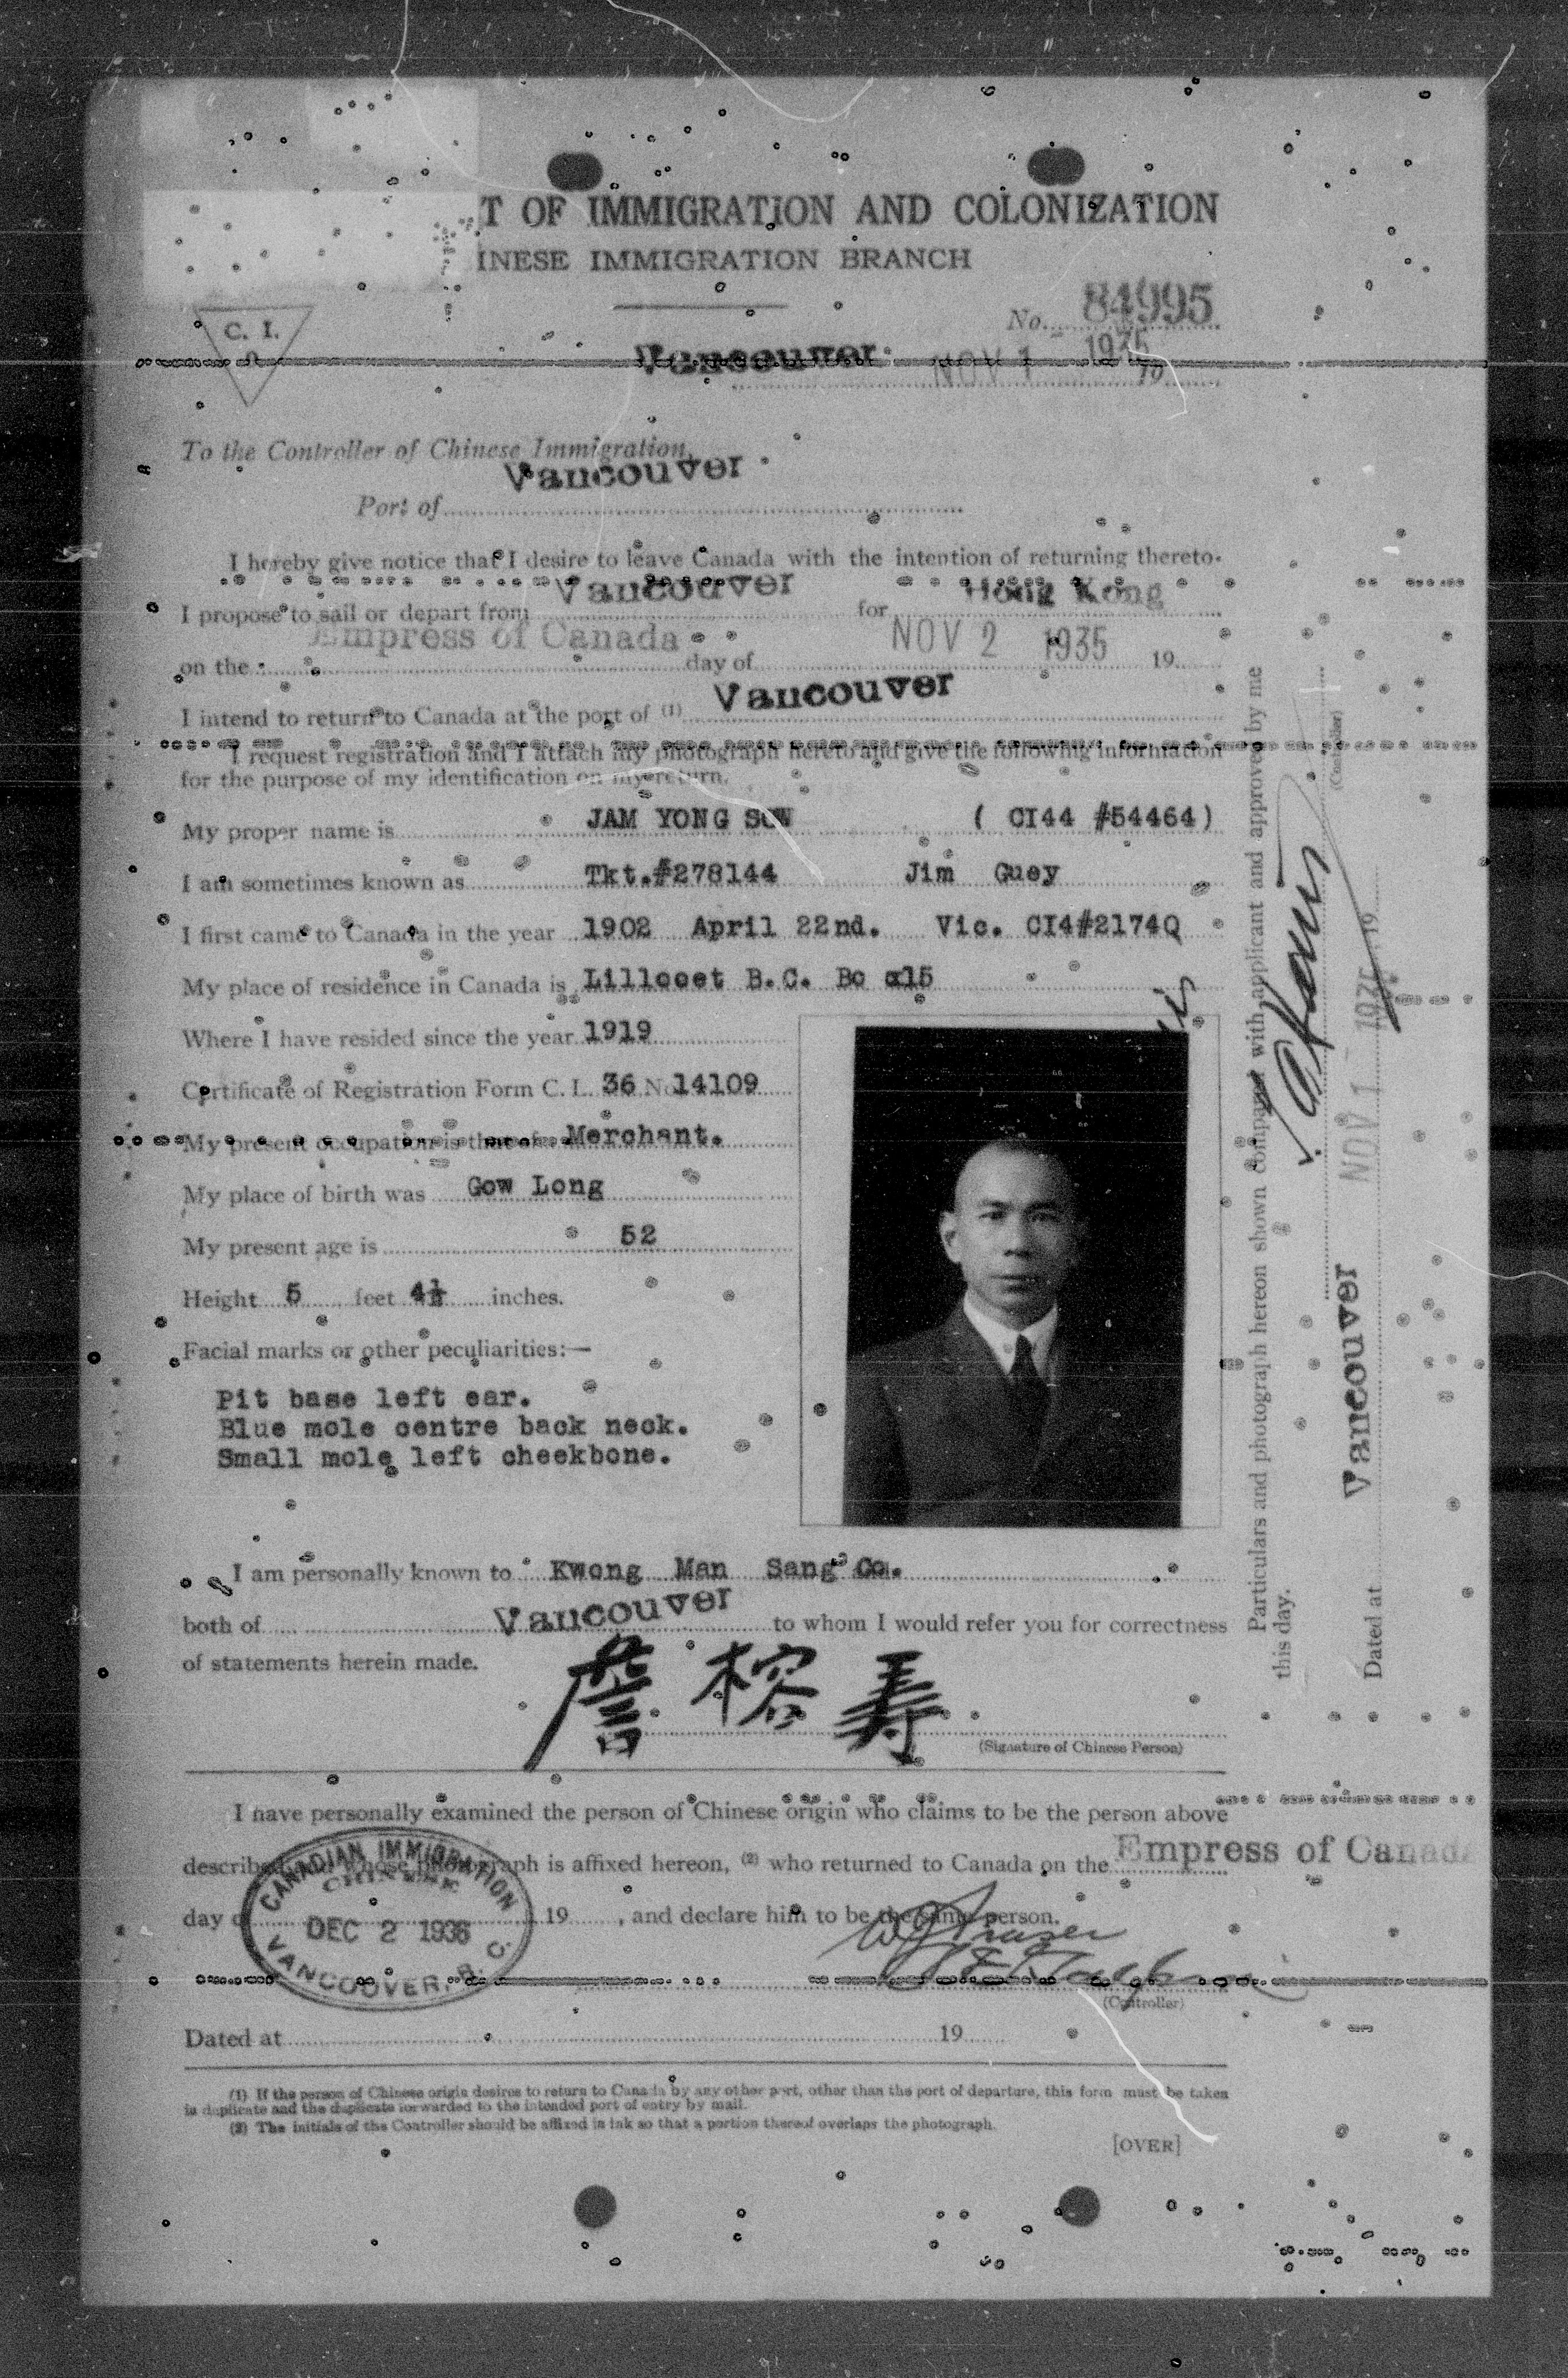 T OF IMMIGRATION AND COLONIZATION
INESE IMMIGRATION BRANCH
No. 84995
C. I.
9
Vancouver NOV 1 - 1935 19
To the Controller of Chinese Immigration,
Port of Vancouver
I hereby give notice that I desire to leave Canada with the intention of returning thereto.
I propose to sail or depart from Vancouver for Hong Kong
on the Empress of Canada day of NOV 2 1935 19
I intend to return to Canada at the port of (1) Vancouver
I request registration and I attach my photograph hereto and give the following information
for the purpose of my identification on my return.
My proper name is JAM YONG SOW ( CI44 #54464)
I am sometimes known as Tkt.#278144 Jim Guey
I first came to Canada in the year 1902 April 22nd. Vic. CI4#2174Q
My place of residence in Canada is Lillooet B.C. Bo x15
Where I have resided since the year 1919
Certificate of Registration Form C. I. 36 No 14109
My present occupation is that of a Merchant.
My place of birth was Gow Long
My present age is 52
Height 5 feet 4½ inches.
Facial marks or other peculiarities:—
Pit base left ear.
Blue mole centre back neck.
Small mole left cheekbone.
I am personally known to Kwong Man Sang Co.
both of Vancouver to whom I would refer you for correctness
of statements herein made.
詹榕寿
(Signature of Chinese Person)
I have personally examined the person of Chinese origin who claims to be the person above
described and whose photograph is affixed hereon, (2) who returned to Canada on the Empress of Canada
day of 19 , and declare him to be the same person.
CANADIAN IMMIGRATION
CHINESE
DEC 2 1936
VANCOUVER, B. C.
W J Fraser
(Controller)
Dated at 19
(1) If the person of Chinese origin desires to return to Canada by any other port, other than the port of departure, this form must be taken
in duplicate and the duplicate forwarded to the intended port of entry by mail.
(2) The initials of the Controller should be affixed in ink so that a portion thereof overlaps the photograph.
[OVER]
Particulars and photograph hereon shown compared with applicant and approved by me
this day.
(Controller)
Dated at Vancouver NOV 1 - 1935 19